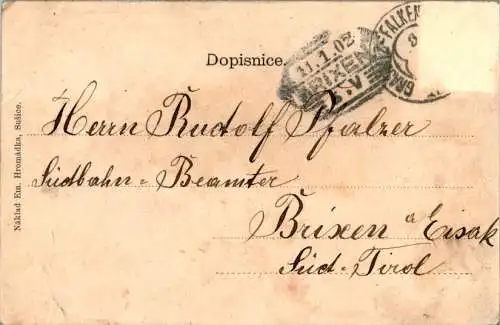 Dopisnice.
11.1.02
BRIXEN
Herrn Rudolf Pfalzer
Südbahn-Beamter
Brixen a Eisak
Süd-Tirol
Náklad Em. Hromádka, Sušice.